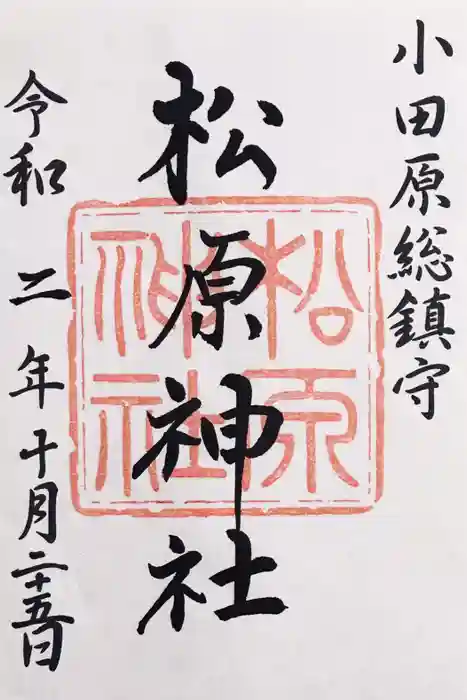 小田原総鎮守
松原神社
松原神社
令和二年十月二十五日